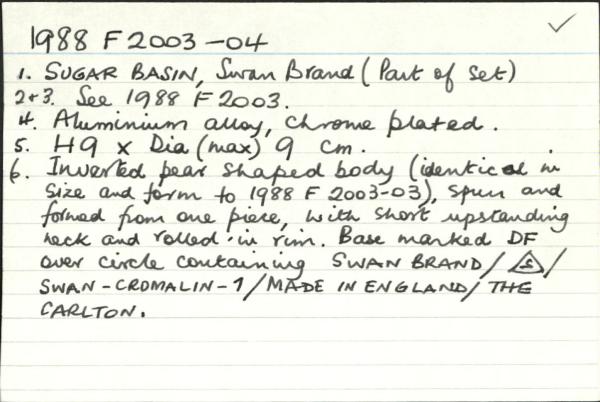 1988 F 2003-04
1. SUGAR BASIN, Swan Brand (Part of set)
2+3. See 1988 F 2003.
4. Aluminium alloy, chrome plated.
5. H9 x Dia (max) 9 cm.
6. Inverted pear shaped body (identical in
size and form to 1988 F 2003-03), spun and
formed from one piece, with short upstanding
neck and rolled-in rim. Base marked DF
over circle containing SWAN BRAND/ S /
SWAN-CROMALIN-1/MADE IN ENGLAND/ THE
CARLTON.